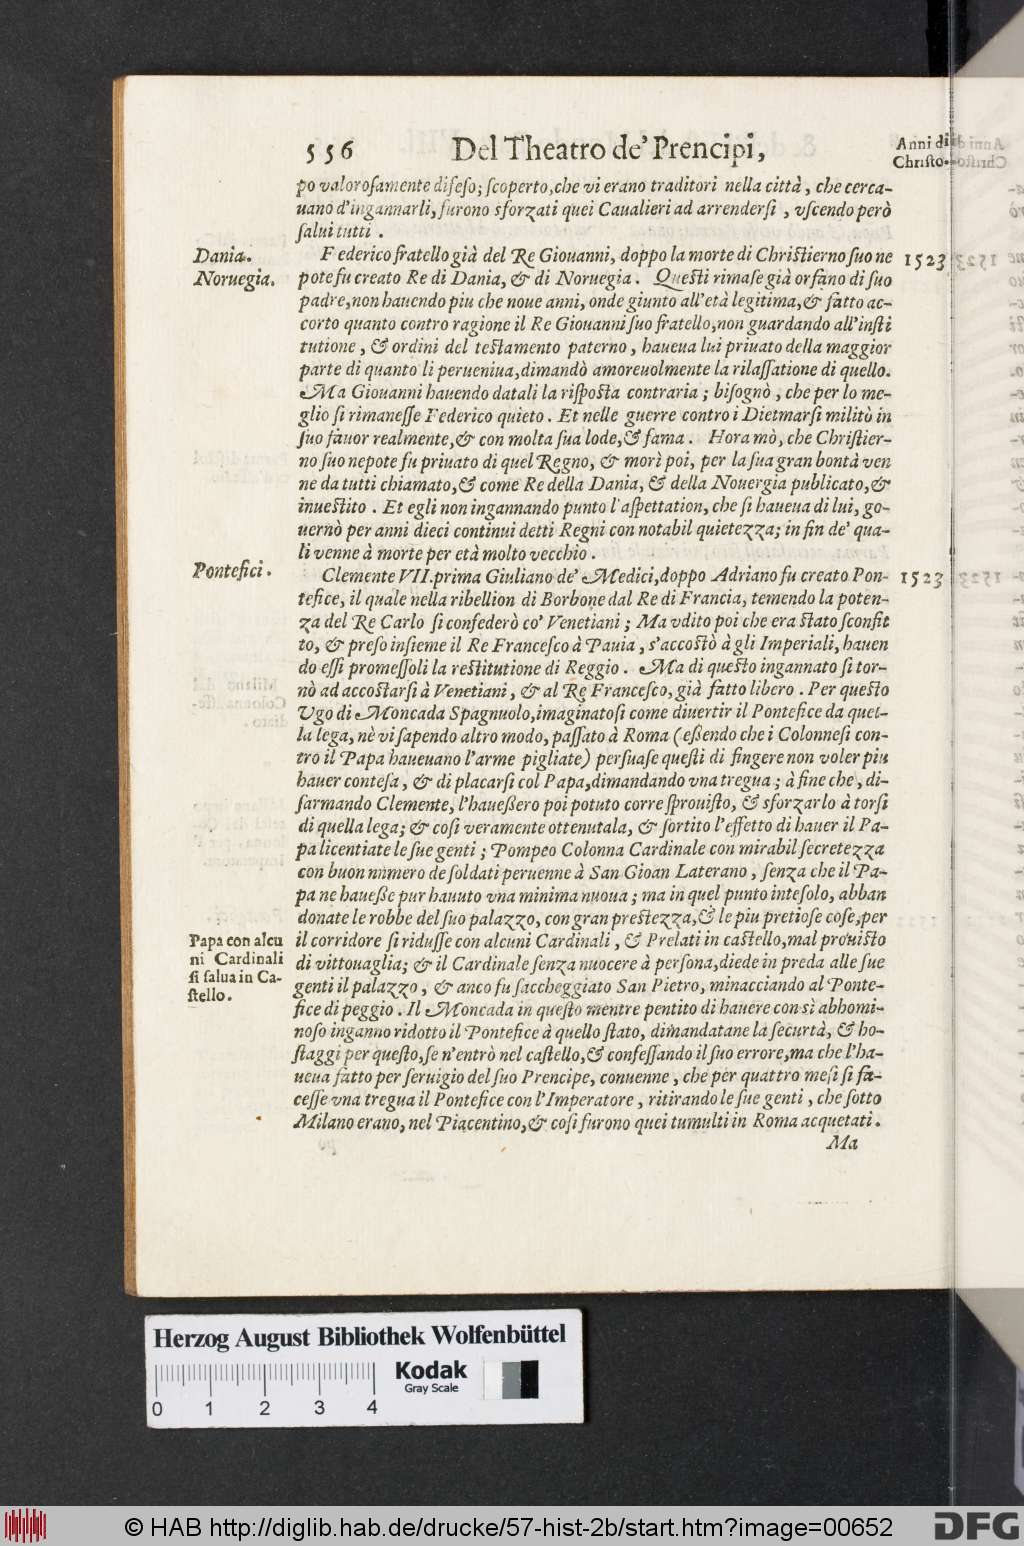 556 Del Theatro de' Prencipi, Anni di
Christo.
po valorosamente difeso; scoperto, che vi erano traditori nella città, che cerca-
uano d'ingannarli, furono sforzati quei Caualieri ad arrendersi, vscendo però
salui tutti.
Dania.
Noruegia.
Federico fratello già del Re Giouanni, doppo la morte di Christierno suo ne 1523
pote fu creato Re di Dania, & di Noruegia. Questi rimase già orfano di suo
padre, non hauendo piu che noue anni, onde giunto all'età legitima, & fatto ac-
corto quanto contro ragione il Re Giouanni suo fratello, non guardando all'insti
tutione, & ordini del testamento paterno, haueua lui priuato della maggior
parte di quanto li perueniua, dimandò amoreuolmente la rilassatione di quello.
Ma Giouanni hauendo datali la risposta contraria; bisognò, che per lo me-
glio si rimanesse Federico quieto. Et nelle guerre contro i Dietmarsi militò in
suo fauor realmente, & con molta sua lode, & fama. Hora mò, che Christier-
no suo nepote fu priuato di quel Regno, & morì poi, per la sua gran bontà ven
ne da tutti chiamato, & come Re della Dania, & della Nouergia publicato, &
inuestito. Et egli non ingannando punto l'aspettation, che si haueua di lui, go-
uernò per anni dieci continui detti Regni con notabil quietezza; in fin de' qua-
li venne à morte per età molto vecchio.
Pontefici.
Clemente VII. prima Giuliano de' Medici, doppo Adriano fu creato Pon- 1523
tefice, il quale nella ribellion di Borbone dal Re di Francia, temendo la poten-
za del Re Carlo si confederò co' Venetiani; Ma vdito poi che era stato sconfit
to, & preso insieme il Re Francesco à Pauia, s'accostò à gli Imperiali, hauen
do essi promessoli la restitutione di Reggio. Ma di questo ingannato si tor-
nò ad accostarsi à Venetiani, & al Re Francesco, già fatto libero. Per questo
Vgo di Moncada Spagnuolo, imaginatosi come diuertir il Pontefice da quel-
la lega, nè vi sapendo altro modo, passato à Roma (essendo che i Colonnesi con-
tro il Papa haueuano l'arme pigliate) persuase questi di fingere non voler piu
hauer contesa, & di placarsi col Papa, dimandando vna tregua; à fine che, di-
sarmando Clemente, l'hauessero poi potuto corre sprouisto, & sforzarlo à torsi
di quella lega; & cosi veramente ottenutala, & sortito l'effetto di hauer il Pa-
pa licentiate le sue genti; Pompeo Colonna Cardinale con mirabil secretezza
con buon numero de soldati peruenne à San Gioan Laterano, senza che il Pa-
pa ne hauesse pur hauuto vna minima nuoua; ma in quel punto intesolo, abban
donate le robbe del suo palazzo, con gran prestezza, & le piu pretiose cose, per
Papa con alcu
ni Cardinali
si salua in Ca-
stello.
il corridore si ridusse con alcuni Cardinali, & Prelati in castello, mal prouisto
di vittouaglia; & il Cardinale senza nuocere à persona, diede in preda alle sue
genti il palazzo, & anco fu saccheggiato San Pietro, minacciando al Ponte-
fice di peggio. Il Moncada in questo mentre pentito di hauere con sì abhomi-
noso inganno ridotto il Pontefice à quello stato, dimandatane la securtà, & ho-
staggi per questo, se n'entrò nel castello, & confessando il suo errore, ma che l'ha-
ueua fatto per seruigio del suo Prencipe, conuenne, che per quattro mesi si fa-
cesse vna tregua il Pontefice con l'Imperatore, ritirando le sue genti, che sotto
Milano erano, nel Piacentino, & cosi furono quei tumulti in Roma acquetati.
Ma
Herzog August Bibliothek Wolfenbüttel
Kodak
Gray Scale
0 1 2 3 4
© HAB http://diglib.hab.de/drucke/57-hist-2b/start.htm?image=00652
DFG